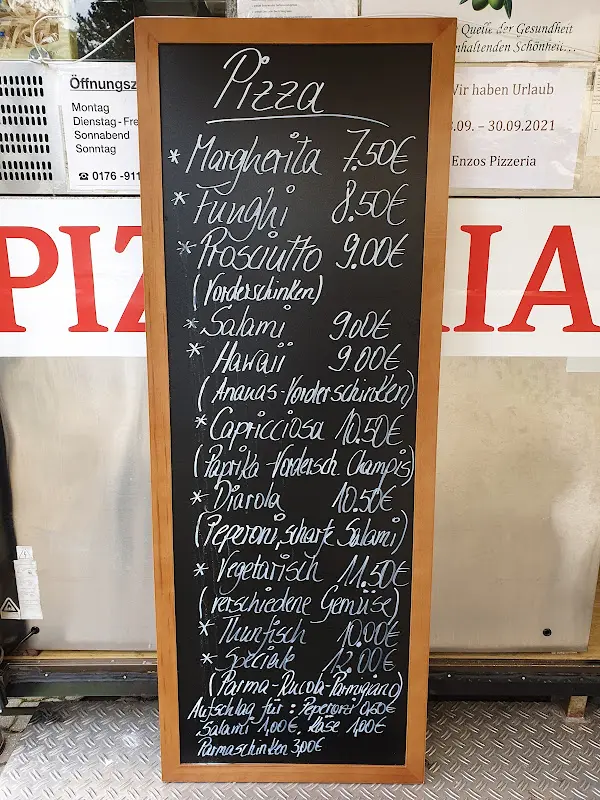 Quelle der Gesundheit
nhaltenden Schönheit...
Öffnungsz
Montag
Dienstag - Fre
Sonnabend
Sonntag
☎ 0176 -911
Wir haben Urlaub
.09. – 30.09.2021
Enzos Pizzeria
PIZ RIA
Pizza
* Margherita 7.50€
* Funghi 8.50€
* Prosciutto 9.00€
(Vorderschinken)
* Salami 9.00€
* Hawaii 9.00€
(Ananas-Vorderschinken)
* Capricciosa 10.50€
(Paprika-Vordersch. Champis)
* Diavola 10.50€
(Peperoni, scharfe Salami)
* Vegetarisch 11.50€
(verschiedene Gemüse)
* Thunfisch 10.00€
* Speciale 12.00€
(Parma-Rucola-Parmigiano)
Aufschlag für: Peperoni 0,60€
Salami 1,00€, Käse 1,00€
Parmaschinken 3,00€